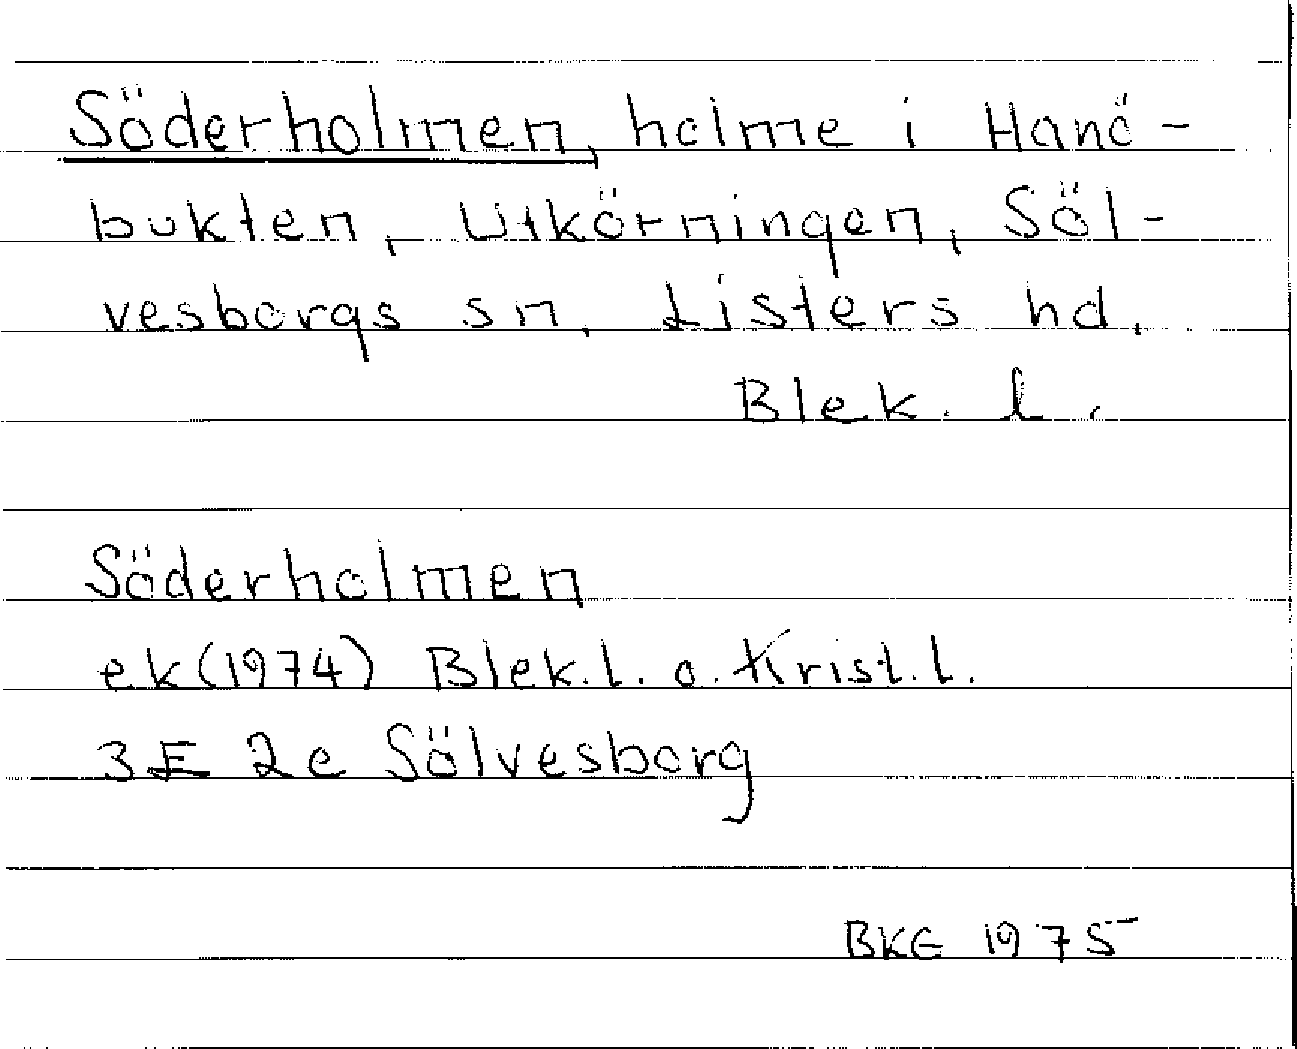 Söderholmen, holme i Hanö-
bukten, Utkörningen, Söl-
vesborgs sn, Listers hd,
Blek. l.
Söderholmen
ek (1974) Blek. l. o. Krist. l.
3E 2e Sölvesborg
BKE 1975